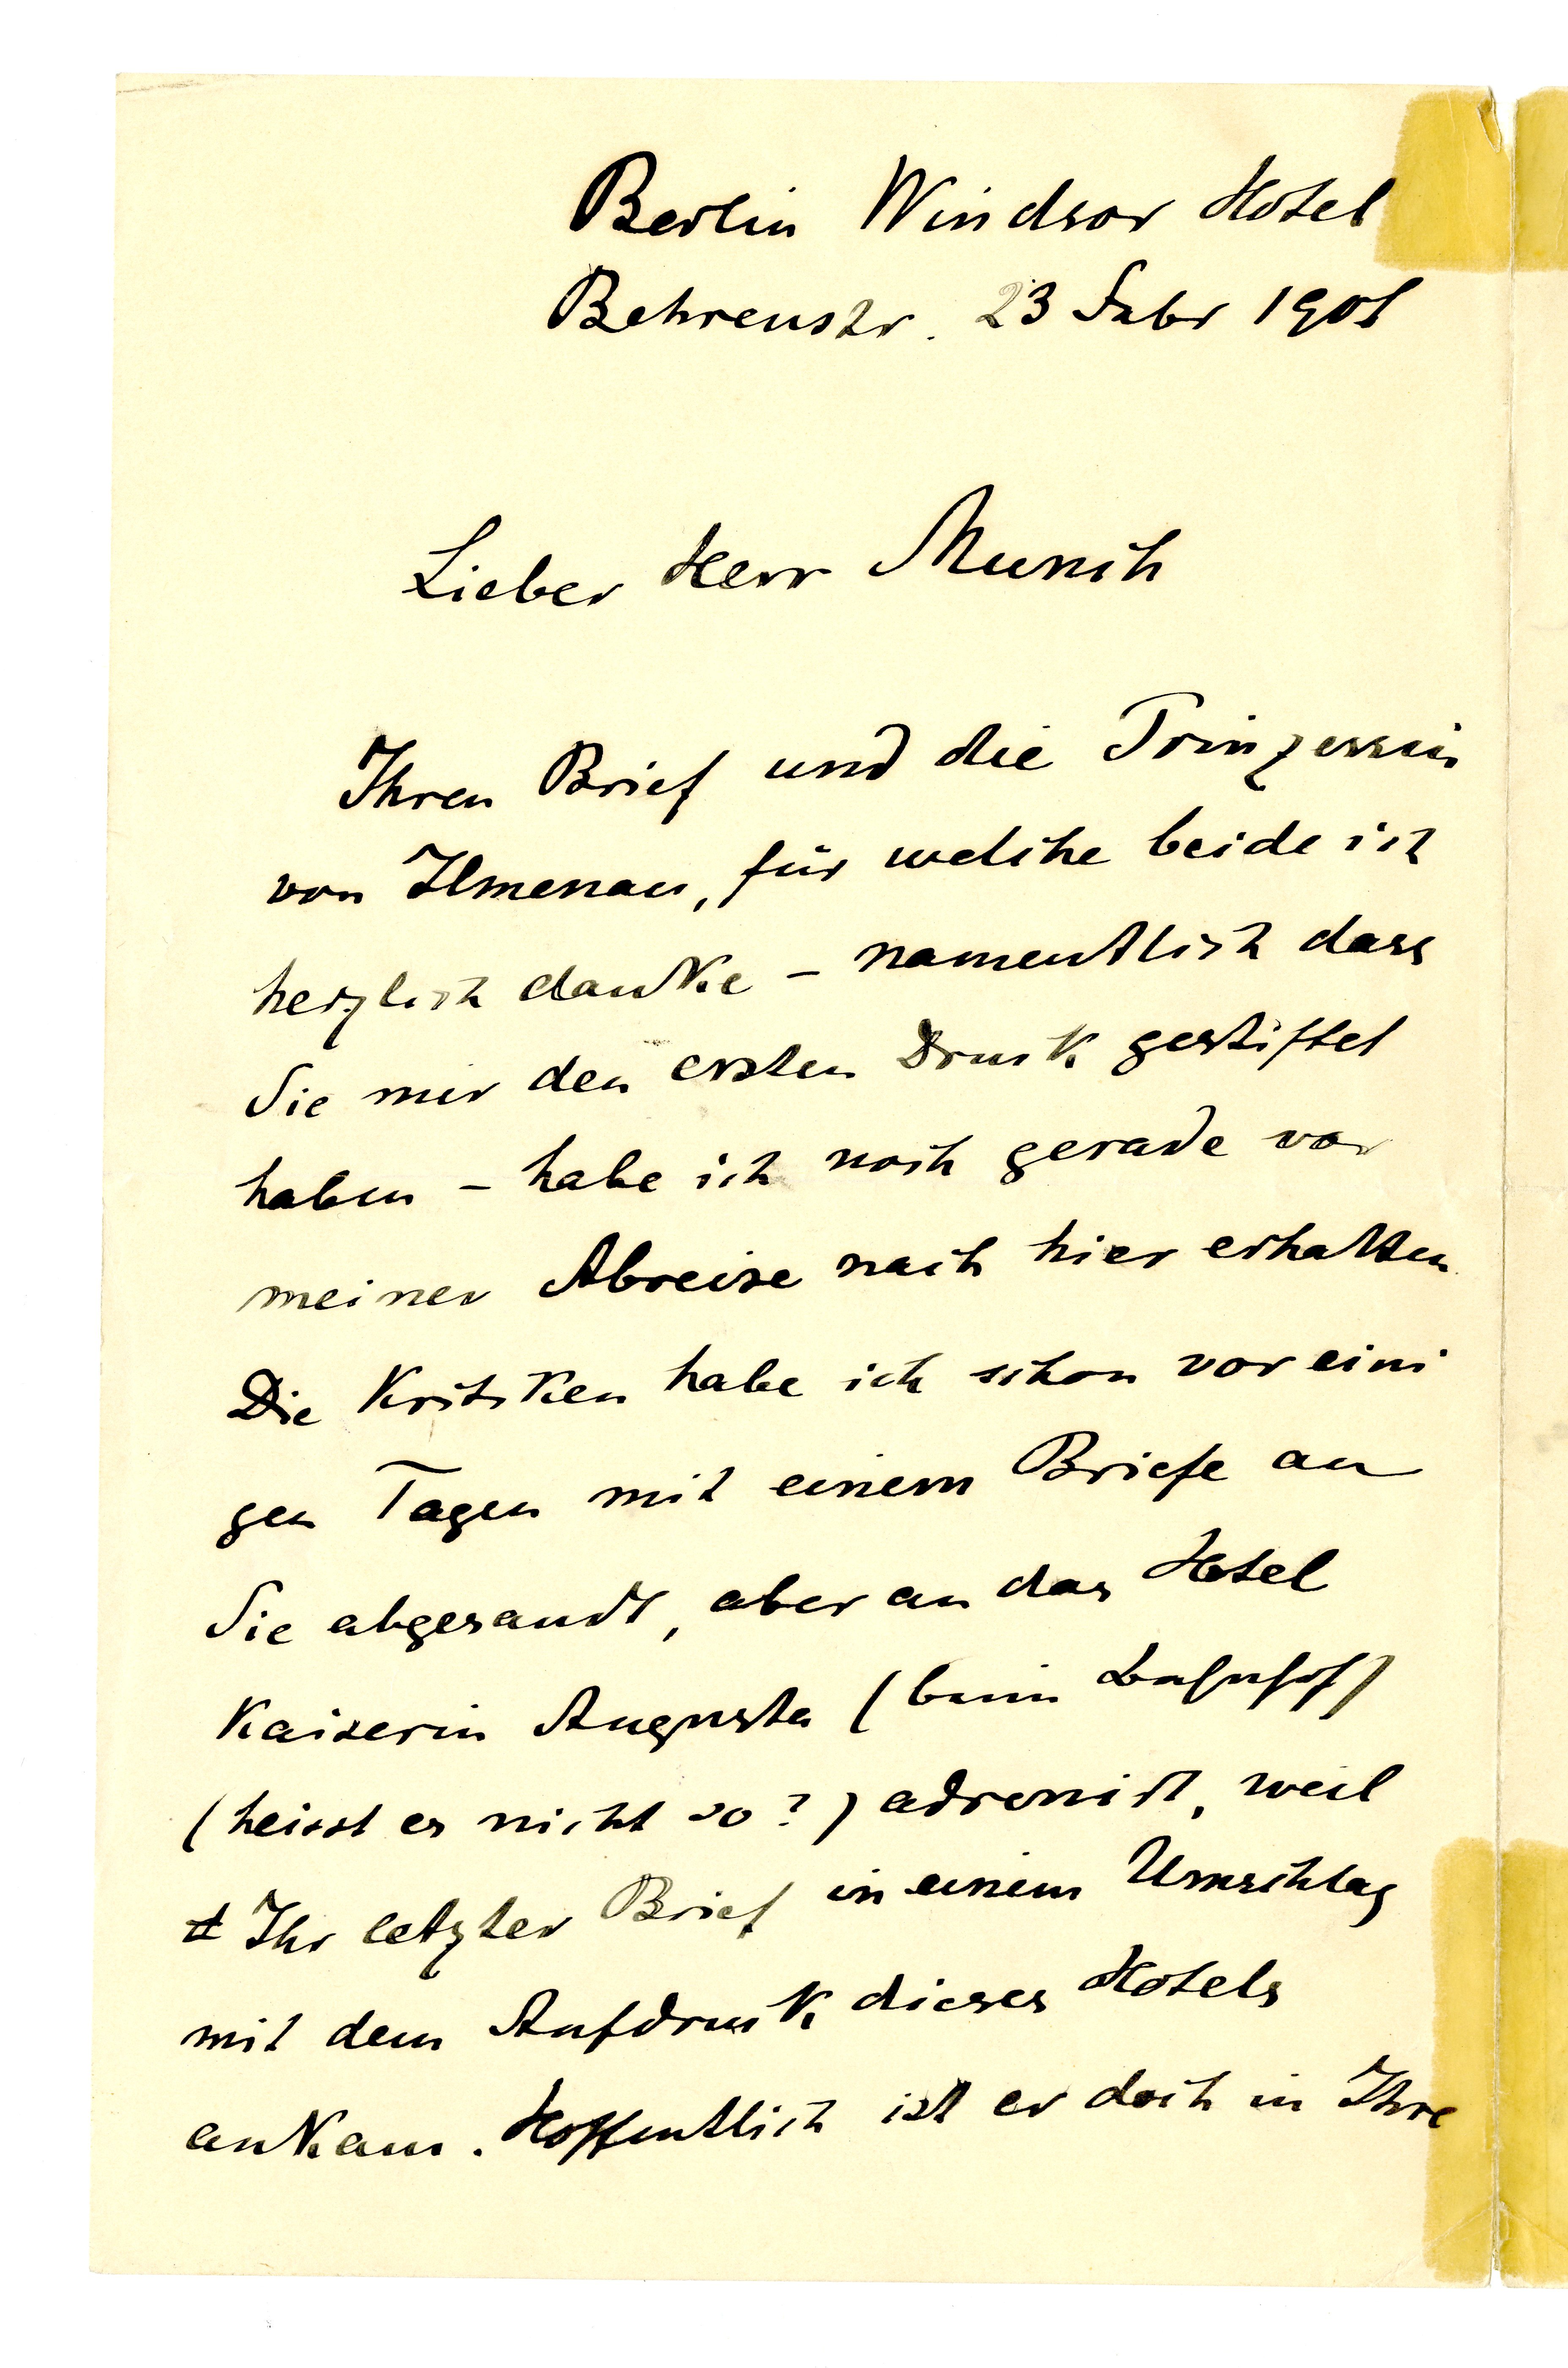 Berlin Windsor Hotel
Behrenstr. 23 Febr 1905
Lieber Herr Munch
Ihren Brief und die Prinzessin
von Ilmenau, für welche beide ich
herzlich danke – namentlich dass
Sie mir den ersten Druck gestiftet
haben – habe ich noch gerade vor
meiner Abreise nach hier erhalten.
Die Kritiken habe ich schon vor eini
gen Tagen mit einem Briefe an
Sie abgesandt, aber an das Hotel
Kaiserin Augusta (beim Bahnhof)
(heisst es nicht so?) adressirt, weil
Ihr letzter Brief in einem Umschlag
mit dem Aufdruck dieses Hotels
ankam. Hoffentlich ist er doch in Ihre